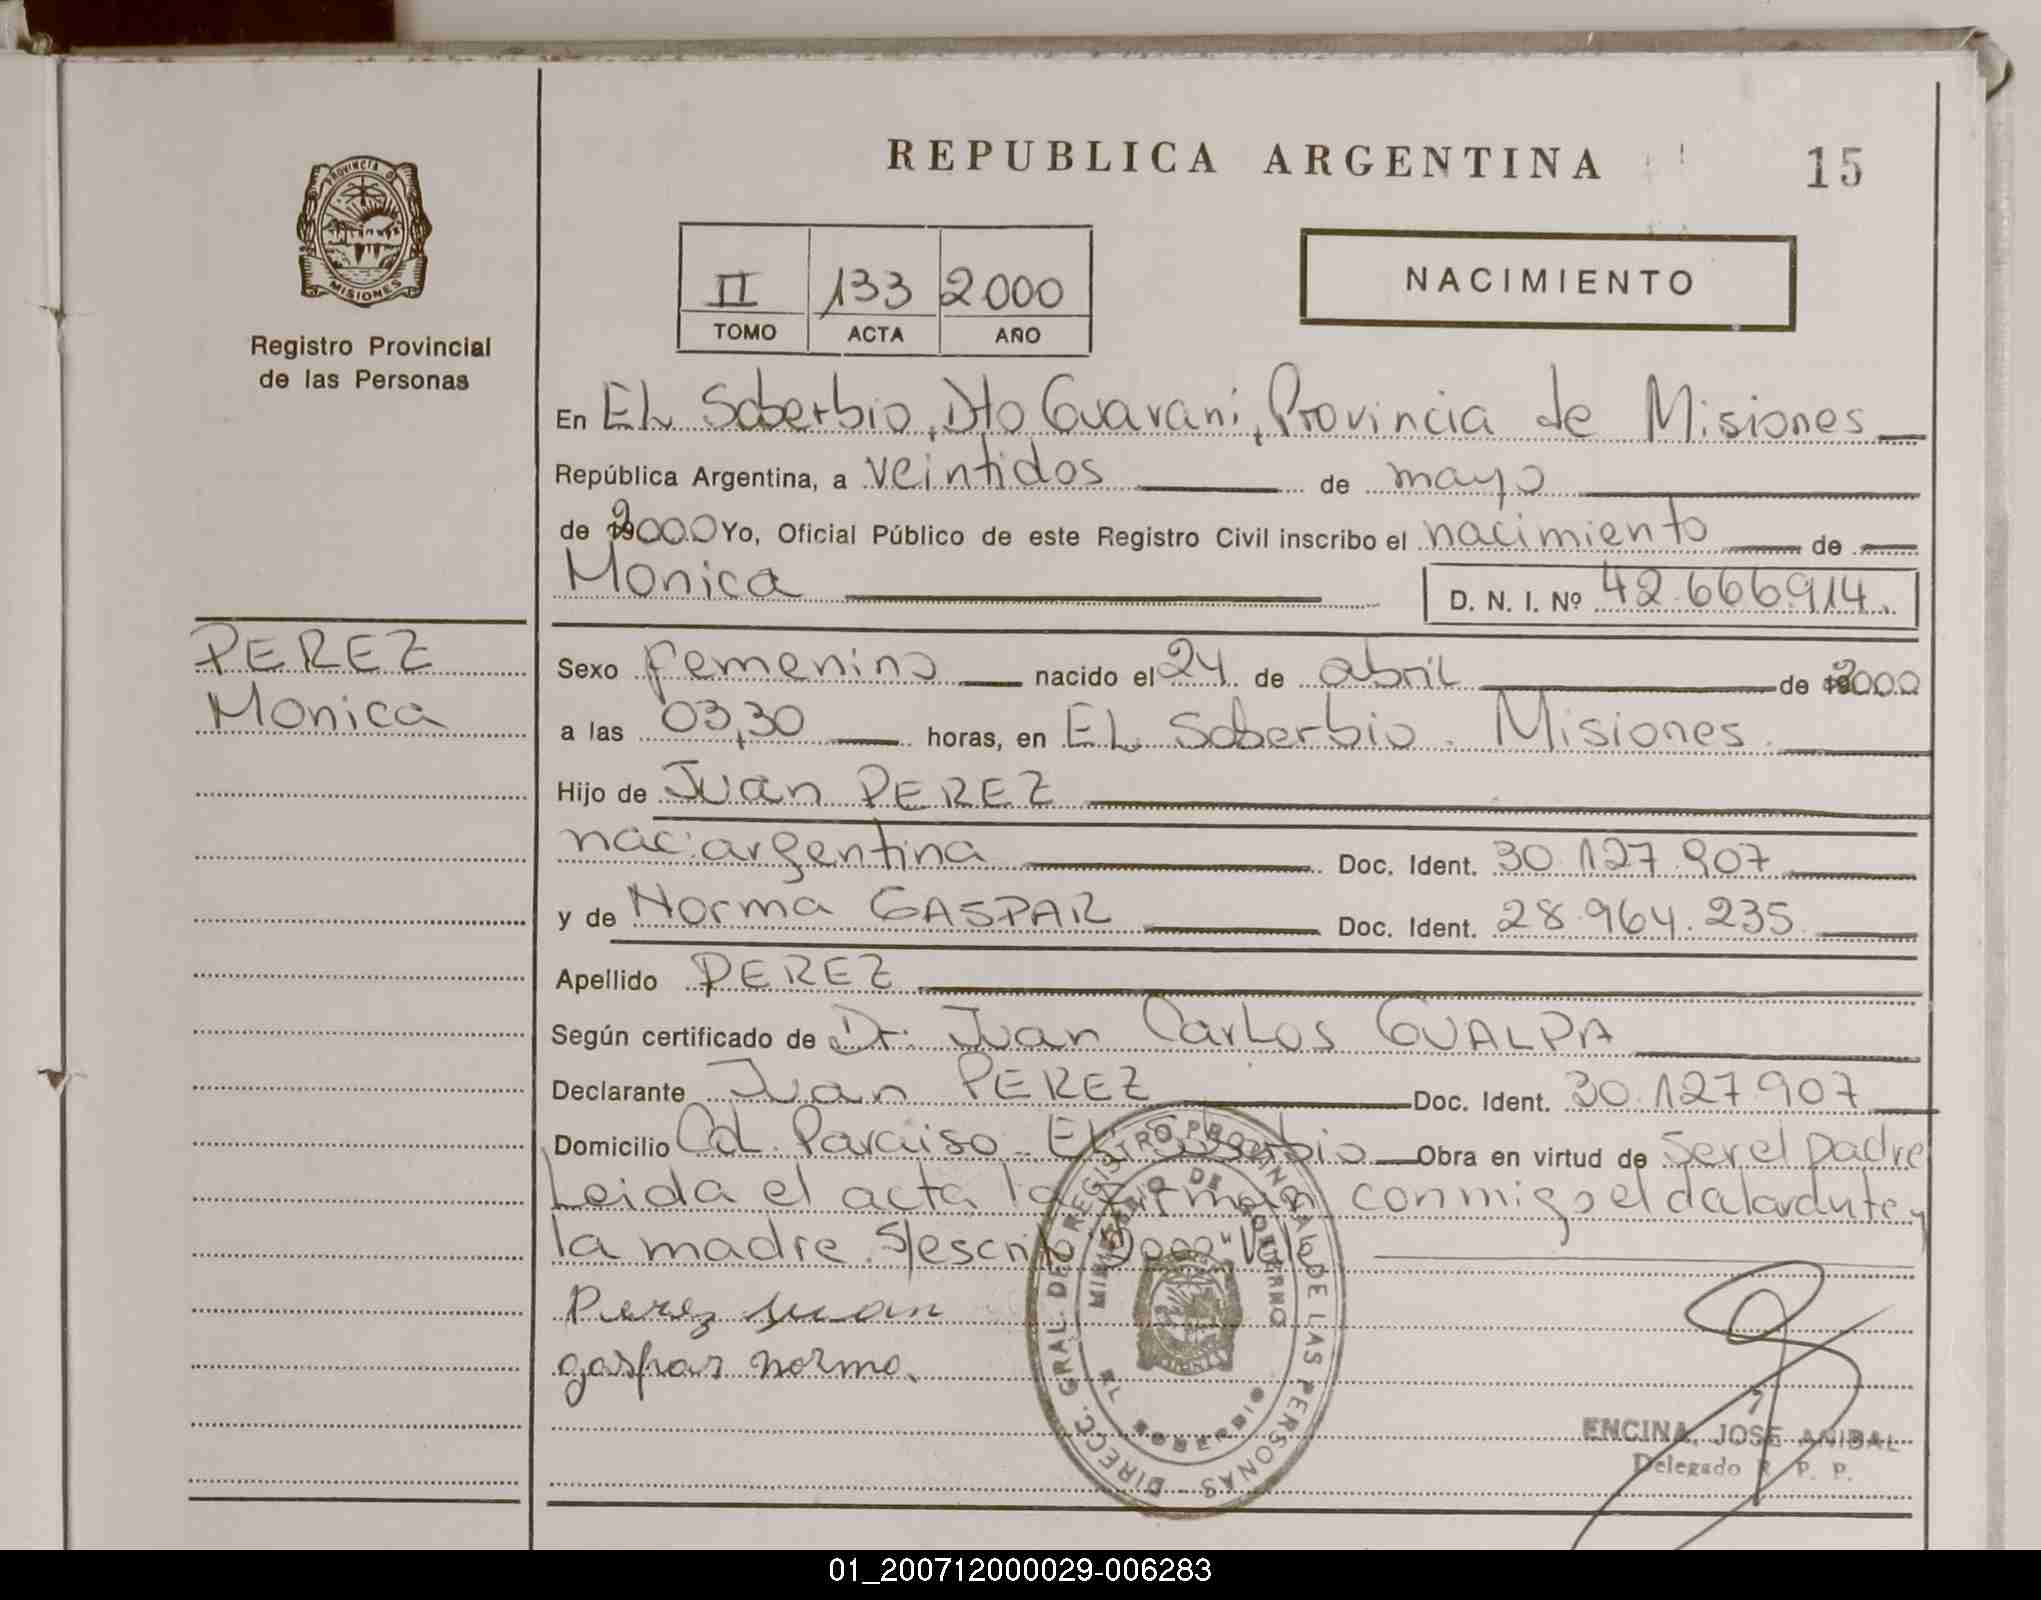 REPUBLICA ARGENTINA
15
PROVINCIA DE
MISIONES
Registro Provincial
de las Personas
II 133 2000
TOMO ACTA AÑO
NACIMIENTO
En EL Soberbio, Dto Guarani, Provincia de Misiones
República Argentina, a veintidos de mayo
de 2000 Yo, Oficial Público de este Registro Civil inscribo el nacimiento de
Monica D. N. I. Nº 42.666.914.
PEREZ
Monica
Sexo femenino nacido el 24 de abril de 2000
a las 03,30 horas, en EL Soberbio. Misiones.
Hijo de Juan PEREZ
nac: argentina Doc. Ident. 30.127.907
y de Norma GASPAR Doc. Ident. 28.964.235.
Apellido PEREZ
Según certificado de Dr. Juan Carlos GUALPA
Declarante Juan PEREZ Doc. Ident. 30.127.907
Domicilio Col. Paraiso - EL Soberbio Obra en virtud de ser el padre
Leida el acta la firman conmigo el dalardute y
la madre. S/escrito "2000" Vale
Perez Juan
gaspar norma.
DIRECC. GRAL. DE REGISTRO PROVINCIAL DE LAS PERSONAS
MINISTERIO DE GOBIERNO
EL SOBERBIO
MISIONES
ENCINA, JOSE ANIBAL
Delegado R. P. P.
01_200712000029-006283